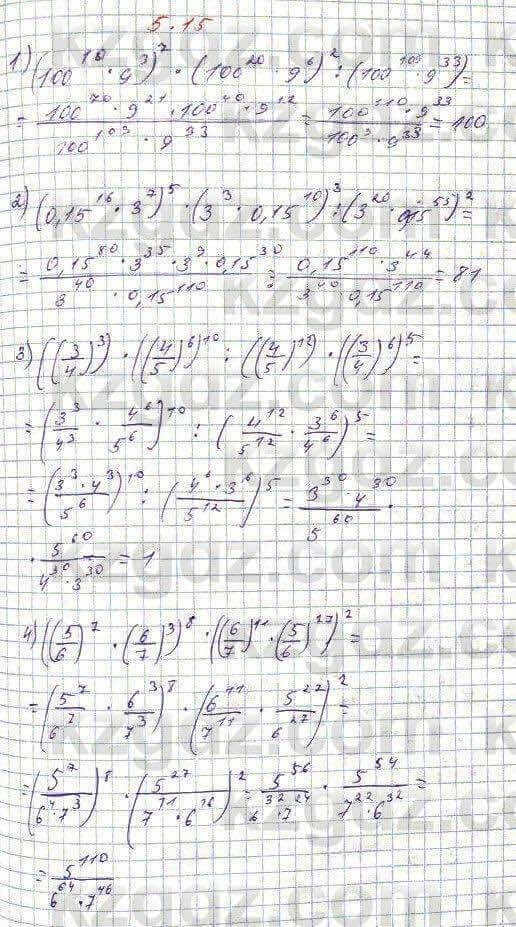 5.15
1) (100¹⁰ · 9³)⁷ · (100²⁰ · 9⁶)² : (100¹⁰⁹ · 9³³) =
= (100⁷⁰ · 9²¹ · 100⁴⁰ · 9¹²)/(100¹⁰⁹ · 9³³) = (100¹¹⁰ · 9³³)/(100⁹ · 9³³) = 100
2) (0,15¹⁶ · 3⁷)⁵ · (3³ · 0,15¹⁰)³ : (3²⁰ · 0,15⁵⁵)² =
= (0,15⁸⁰ · 3³⁵ · 3⁹ · 0,15³⁰)/(3⁴⁰ · 0,15¹¹⁰) = (0,15¹¹⁰ · 3⁴⁴)/(3⁴⁰ · 0,15¹¹⁰) = 81
3) (((3/4)³) · ((4/5)⁶)¹⁰ : ((4/5)¹²) · ((3/4)⁶)⁵ =
= (3³/4³ · 4⁶/5⁶)¹⁰ : (4¹²/5¹² · 3⁶/4⁶)⁵ =
= ((3³ · 4³)/5⁶)¹⁰ : ((4⁶ · 3⁶)/5¹²)⁵ = (3³⁰ · 4³⁰)/5⁶⁰ ·
· 5⁶⁰/(4³⁰ · 3³⁰) = 1
4) ((5/6)⁷ · (6/7)³)⁸ · ((6/7)¹¹ · (5/6)²⁷)² =
= (5⁷/6⁷ · 6³/7³)⁸ · (6¹¹/7¹¹ · 5²⁷/6²⁷)² =
= (5⁷/(6⁴ · 7³))⁸ · (5²⁷/(7¹¹ · 6¹⁶))² = 5⁵⁶/(6³² · 7²⁴) · 5⁵⁴/(7²² · 6³²) =
= 5¹¹⁰/(6⁶⁴ · 7⁴⁶)
kzgdz.com